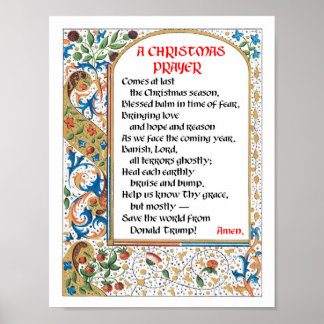 A CHRISTMAS
PRAYER
Comes at last
the Christmas season,
Blessed balm in time of fear,
Bringing love
and hope and reason
As we face the coming year.
Banish, Lord,
all terrors ghostly;
Heal each earthly
bruise and bump.
Help us know Thy grace,
but mostly —
Save the world from
Donald Trump! Amen.